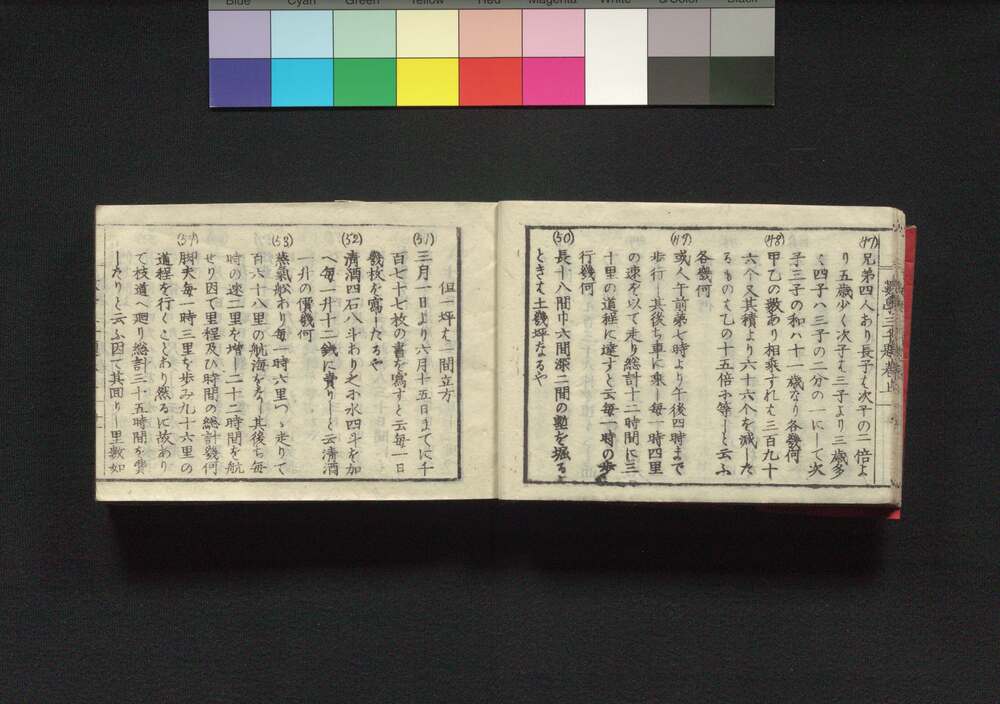 Blue Cyan Green Yellow Red Magenta White 3/Color Black
(47)
兄弟四人あり長子ハ次子の二倍よ
り五歳少く次子ハ三子より三歳多
く四子ハ三子の二分の一にして次
子三子の和ハ十一歳なり各幾何
(48)
甲乙の数あり相乗すれハ三百九十
六个又其積より六十六个を減した
るものハ乙の十五倍に等しと云ふ
各幾何
(49)
或人午前第七時より午後四時まで
歩行し其後ち車に乗し毎一時四里
の速を以て走り総計十二時間に三
十里の道程に達すと云毎一時の歩
行幾何
(50)
長十八間巾六間深二間の塹を堀る
ときハ土幾坪なるや
但一坪ハ一間立方
(51)
三月一日より六月十五日までに千
百七十七枚の書を寫すと云毎一日
幾枚を寫したるや
(52)
清酒四石八斗あり之に水四斗を加
へ毎一升十二銭に賣りしと云清酒
一升の價幾何
(53)
蒸氣舩あり毎一時六里つゝ走りて
百六十八里の航海をなし其後ち毎
時の速二里を増し二十二時間を航
せり因て里程及ひ時間の総計幾何
(54)
脚夫毎一時三里を歩み九十六里の
道程を行くことあり然るに故あり
て枝道へ廻り総計三十五時間を費
したりと云ふ因て其回りし里数如